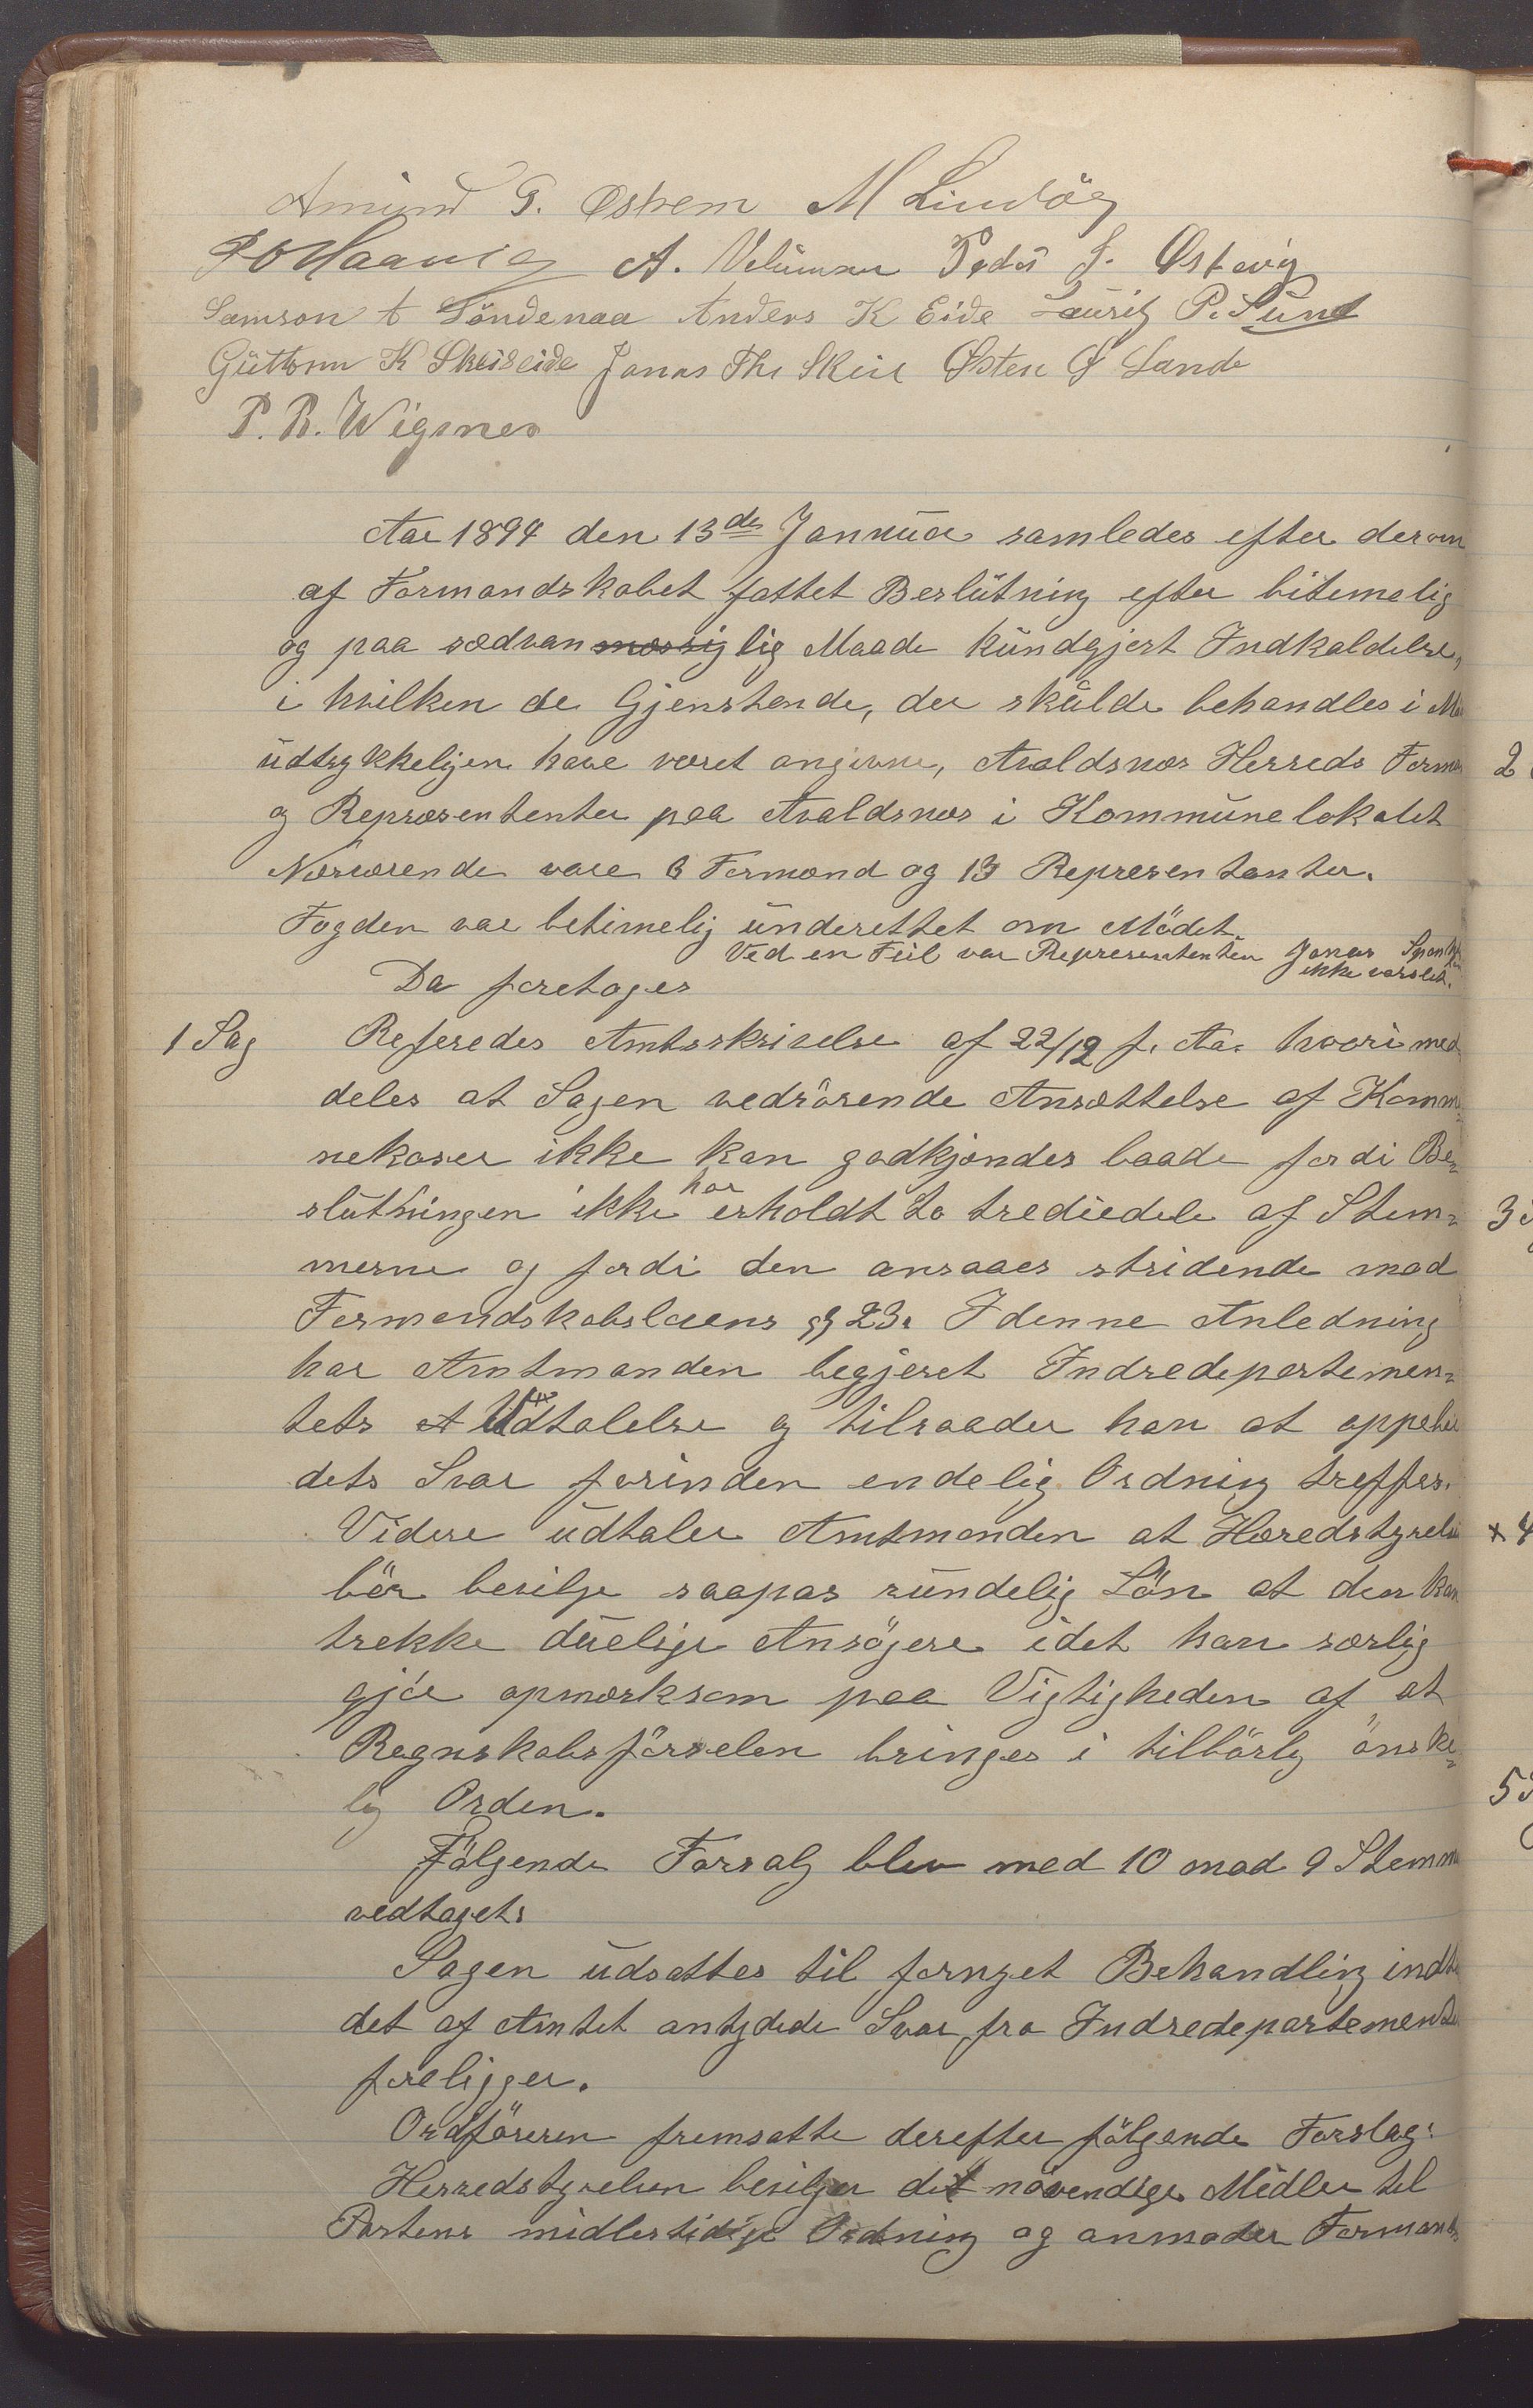 Amund G. Østrem M Lindög
A. Velimsen Peder J. Østevig
Samson A Söndenaa Anders K Eide Lauritz P. Sund
Guttorm K Skeiseide Jonas Ths Skeie Østen Ø Lande
P. R. Wigsnes
Aar 1894 den 13de Januar samledes efter derom
af Formandskabet fattet Beslutning efter bitimelig
og paa sædvanmæssiglig Maade kundgjort Indkaldelse,
i hvilken de Gjenstande, der skulde behandles i Mö
udtrykkeligen have været angivne, Avaldsnæs Herreds Formæ
og Repræsentanter paa Avaldsnæs i Kommunelokalet
Nærværende vare 6 Formænd og 13 Repræsentanter.
Fogden var betimelig underettet om Mödet.
Ved en Feil var Repræsentanten Jonas
ikke varslet.
Da foretoges
1 Sag Referedes Amtsskrivelse af 22/12 f. Aa. hvori med
deles at Sagen vedrörende Ansættelse af Komm
nekaser ikke kan godkjendes baade fordi Be-
slutningen ikke har erholdt to trediedele af Stem-
merne og fordi den ansaaes stridende mod
Formandskabslovens § 23. I denne Anledning
har Amtmanden begjeret Indredepartemen-
tets Udtalelse og tilraader han at oppebie
dets Svar forinden endelig Ordning treffes.
Videre udtaler Amtmanden at Heredstyrels
bör bevilge saapas rundelig Lön at den kan
trekke duelige Ansögere idet han særlig
gjör opmærksom paa Vigtigheden af at
Regnskabsförselen bringes i tilbörlig önske-
lig Orden.
Fölgende Forsalg blev med 10 mod 9 Stemm
vedtaget:
Sagen udsættes til fornyet Behandling indti
det af Amtet antydede Svar fra Indredepartemente
foreligger.
Ordföreren fremsatte derefter fölgende Forslag:
Herredstyrelsen bevilger det növendige Midler til
Postens midlertidige Ordning og anmoder Formands
2
3
x 4
5